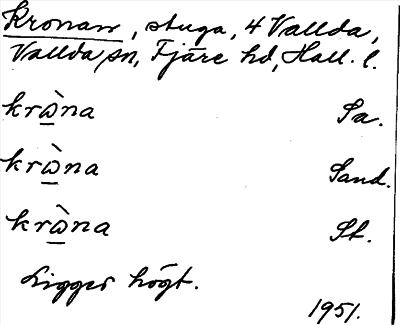 Kronan, stuga, 4 Vallda,
Vallda sn, Fjäre hd, Hall. l.
krὼna Sa.
krὼna Sand.
krὼna St.
Ligger högt.
1951.